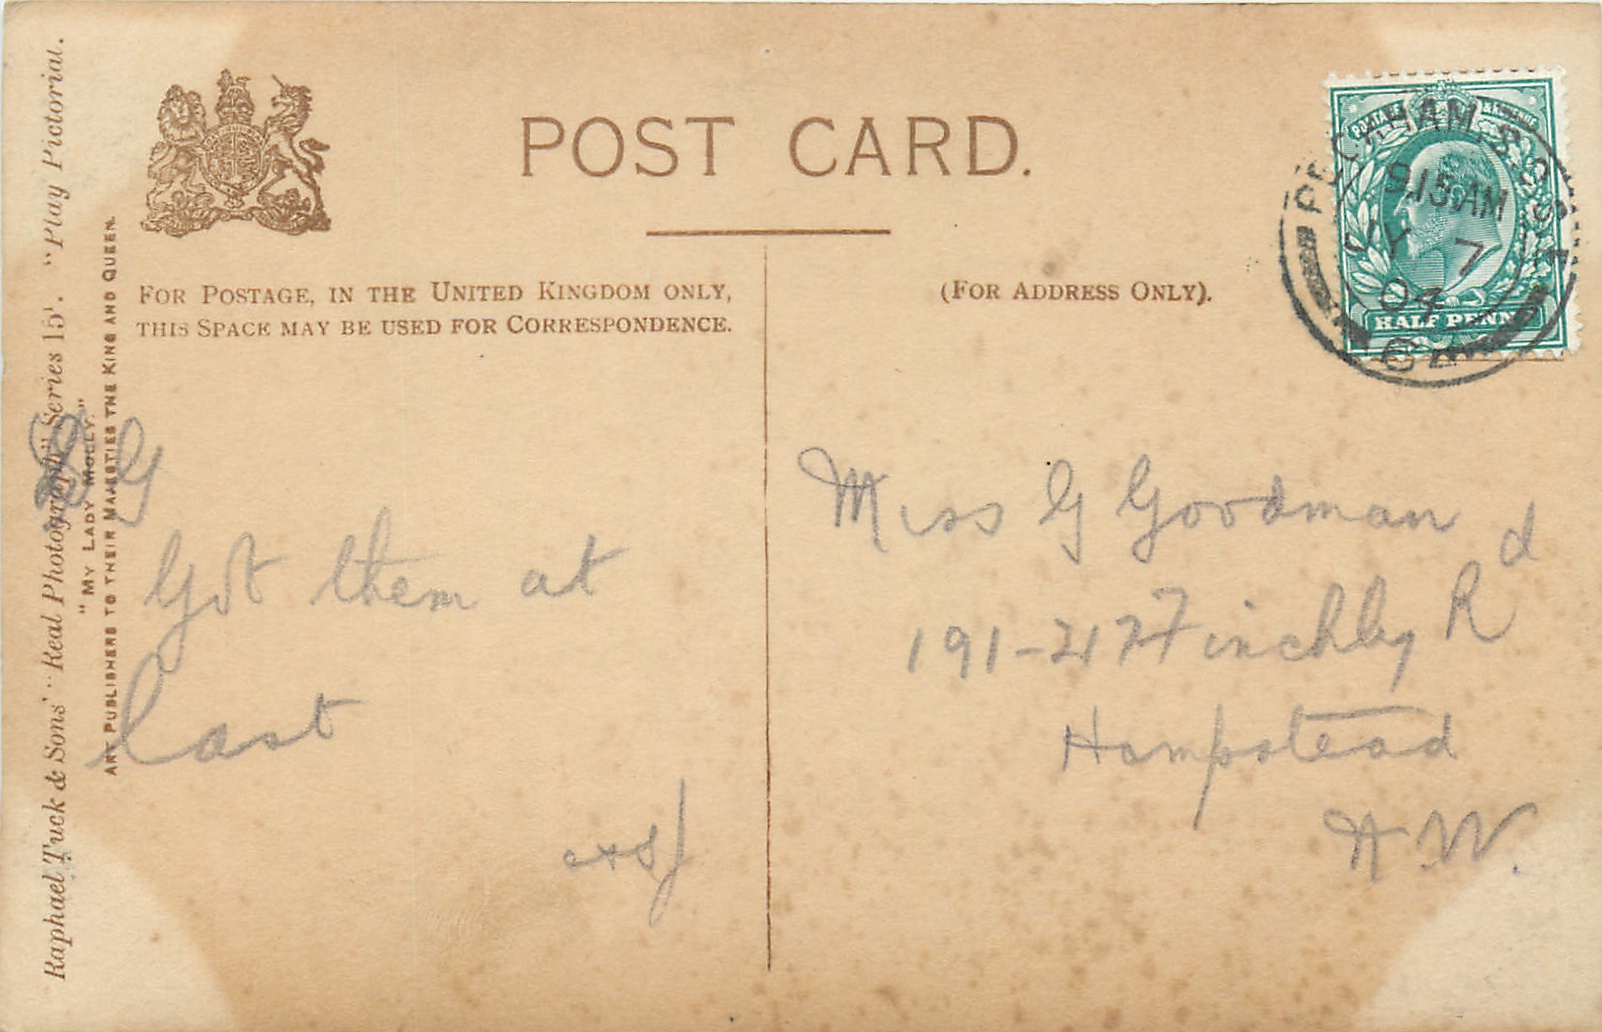 POST CARD.
FOR POSTAGE, IN THE UNITED KINGDOM ONLY,
THIS SPACE MAY BE USED FOR CORRESPONDENCE.
(FOR ADDRESS ONLY).
Raphael Tuck & Sons' "Real Photograph" Series 151. "Play Pictorial.
"MY LADY MOLLY."
ART PUBLISHERS TO THEIR MAJESTIES THE KING AND QUEEN.
POSTAGE & REVENUE
HALF PENNY
PECKHAM S.O. S.E.
9.15 AM
JY 7
04
D G
Got them at
last
Miss G Goodman
191- Finchley Rd
Hampstead
N.W.